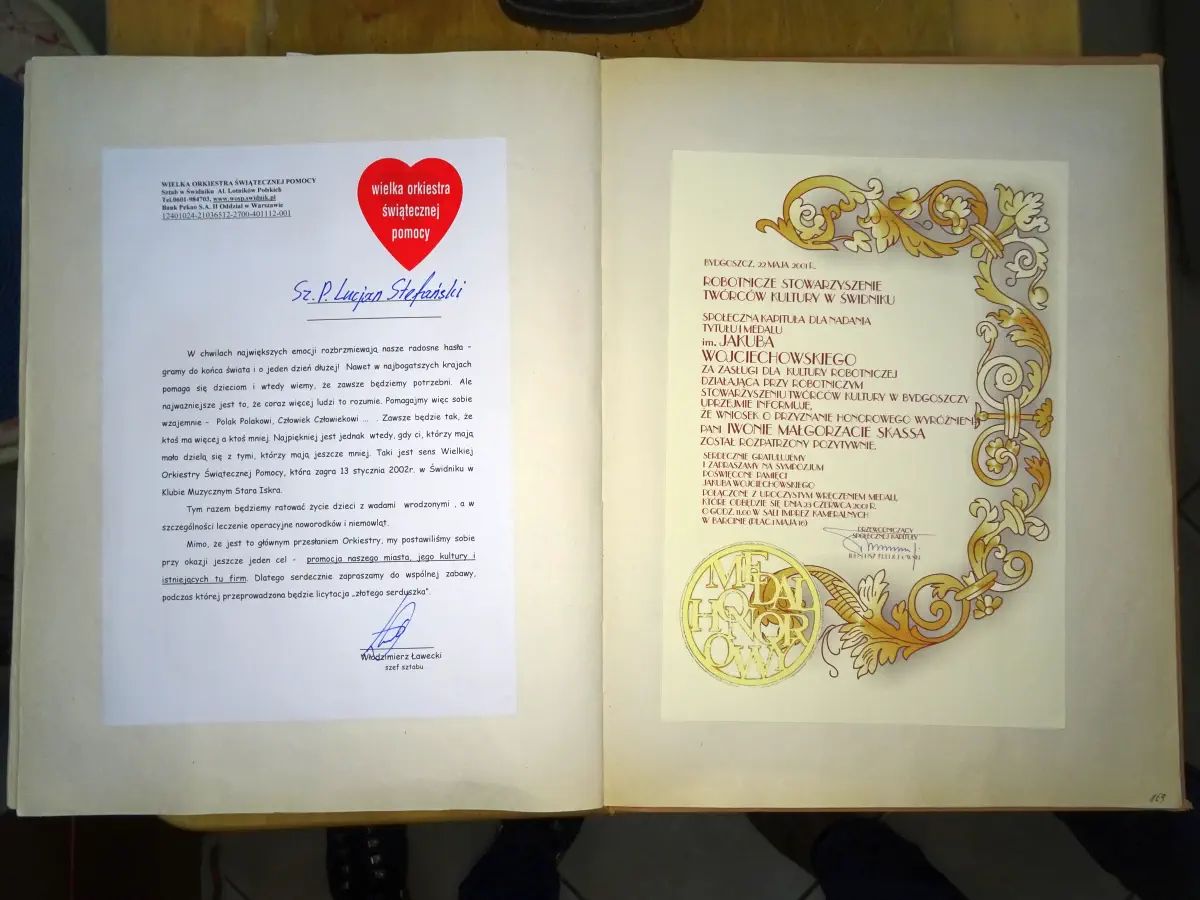 WIELKA ORKIESTRA ŚWIĄTECZNEJ POMOCY
Sztab w Świdniku Al. Lotników Polskich
Tel.0601-984703, www.wosp.swidnik.pl
Bank Pekao S.A. II Oddział w Warszawie
12401024-21036512-2700-401112-001
wielka orkiestra
świątecznej
pomocy
Sz. P. Lucjan Stefański
W chwilach największych emocji rozbrzmiewają nasze radosne hasła -
gramy do końca świata i o jeden dzień dłużej! Nawet w najbogatszych krajach
pomaga się dzieciom i wtedy wiemy, że zawsze będziemy potrzebni. Ale
najważniejsze jest to, że coraz więcej ludzi to rozumie. Pomagajmy więc sobie
wzajemnie - Polak Polakowi, Człowiek Człowiekowi ... . Zawsze będzie tak, że
ktoś ma więcej a ktoś mniej. Najpiękniej jest jednak wtedy, gdy ci, którzy mają
mało dzielą się z tymi, którzy mają jeszcze mniej. Taki jest sens Wielkiej
Orkiestry Świątecznej Pomocy, która zagra 13 stycznia 2002r. w Świdniku w
Klubie Muzycznym Stara Iskra.
Tym razem będziemy ratować życie dzieci z wadami wrodzonymi , a w
szczególności leczenie operacyjne noworodków i niemowląt.
Mimo, że jest to głównym przesłaniem Orkiestry, my postawiliśmy sobie
przy okazji jeszcze jeden cel - promocja naszego miasta, jego kultury i
istniejących tu firm. Dlatego serdecznie zapraszamy do wspólnej zabawy,
podczas której przeprowadzona będzie licytacja „złotego serduszka".
Włodzimierz Ławecki
szef sztabu
BYDGOSZCZ, 22 MAJA 2001 R.
ROBOTNICZE STOWARZYSZENIE
TWÓRCÓW KULTURY W ŚWIDNIKU
SPOŁECZNA KAPITUŁA DLA NADANIA
TYTUŁU I MEDALU
im. JAKUBA
WOJCIECHOWSKIEGO
ZA ZASŁUGI DLA KULTURY ROBOTNICZEJ
DZIAŁAJĄCA PRZY ROBOTNICZYM
STOWARZYSZENIU TWÓRCÓW KULTURY W BYDGOSZCZY
UPRZEJMIE INFORMUJE,
ŻE WNIOSEK O PRZYZNANIE HONOROWEGO WYRÓŻNIENIA
PANI IWONIE MAŁGORZACIE SKASSA
ZOSTAŁ ROZPATRZONY POZYTYWNIE.
SERDECZNIE GRATULUJEMY
I ZAPRASZAMY NA SYMPOZJUM
POŚWIĘCONE PAMIĘCI
JAKUBA WOJCIECHOWSKIEGO
POŁĄCZONE Z UROCZYSTYM WRĘCZENIEM MEDALI,
KTÓRE ODBĘDZIE SIĘ DNIA 23 CZERWCA 2001 R.
O GODZ. 11.00 W SALI IMPREZ KAMERALNYCH
W BARCINIE (PLAC 1 MAJA 16)
PRZEWODNICZĄCY
SPOŁECZNEJ KAPITUŁY
MEDAL
HONOR
OWY
163